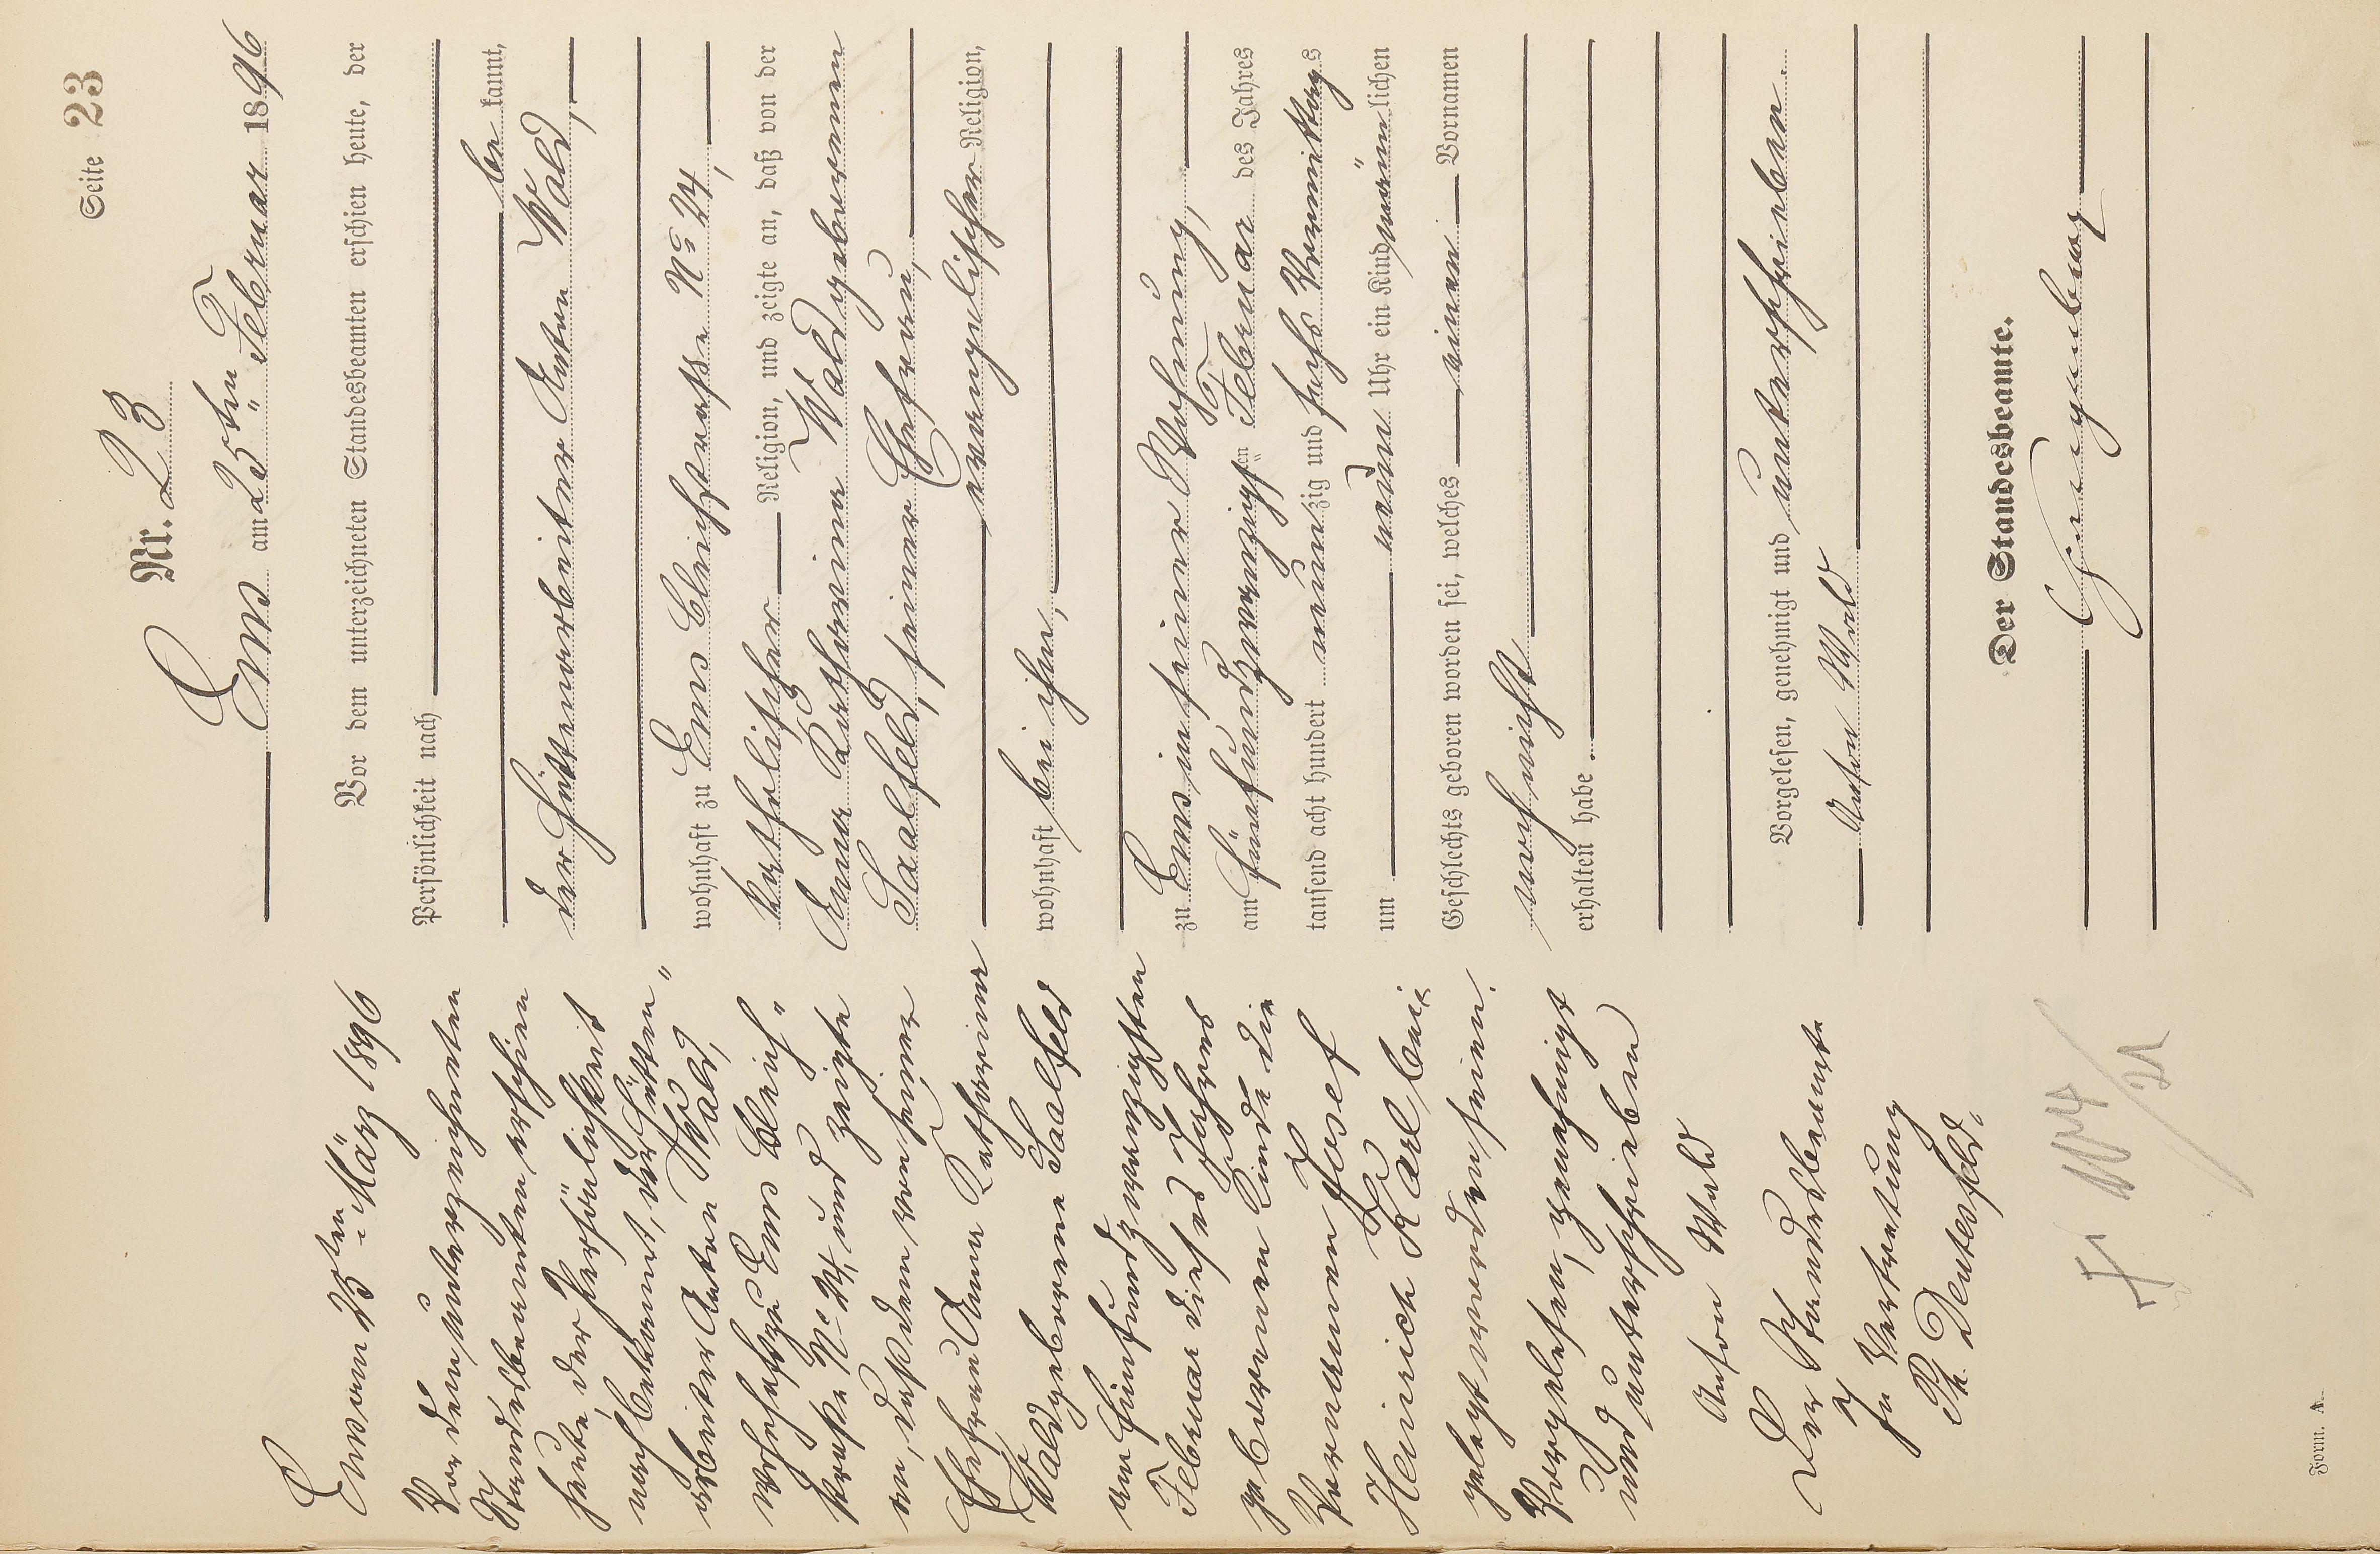 Seite 23
Nr. 23
Ems am 25ten Februar 1896
Vor dem unterzeichneten Standesbeamten erschien heute, der
Persönlichkeit nach
bekannt,
der Hüttenarbeiter Anton Wald,
wohnhaft zu Ems Bleichstrasse No 24,
katholischer Religion, und zeigte an, daß von der
Anna Katharina Wald geborenen
Saalfeld, seiner Ehefrau,
evangelischer Religion,
wohnhaft bei ihm,
zu Ems in seiner Wohnung,
am fünfundzwanzigsten Februar des Jahres
tausend acht hundert neunzig und sechs Vormittags
um neun Uhr ein Kind männlichen
Geschlechts geboren worden sei, welches einen Vornamen
noch nicht
erhalten habe.
Vorgelesen, genehmigt und unterschrieben.
Anton Wald
Der Standesbeamte.
Ems am 25ten März 1896
Vor dem unterzeichneten
Standesbeamten erschien
heute, der Persönlichkeit
nach bekannt, der Hütten"
arbeiter Anton Wald,
wohnhaft zu Ems Bleich"
strasse No 24, und zeigte
an, dass dem von seiner
Ehefrau Anna Katharina
Wald geborene Saalfeld
am fünfundzwanzigsten
Februar dieses Jahres
geborenen Kinde die
Vornamen Josef
Heinrich Karl bei"
gelegt worden seien.
Vorgelesen, genehmigt
und unterschrieben
Anton Wald
Der Standesbeamte
In Vertretung
Ph. Deutesfeld.
Form. A.